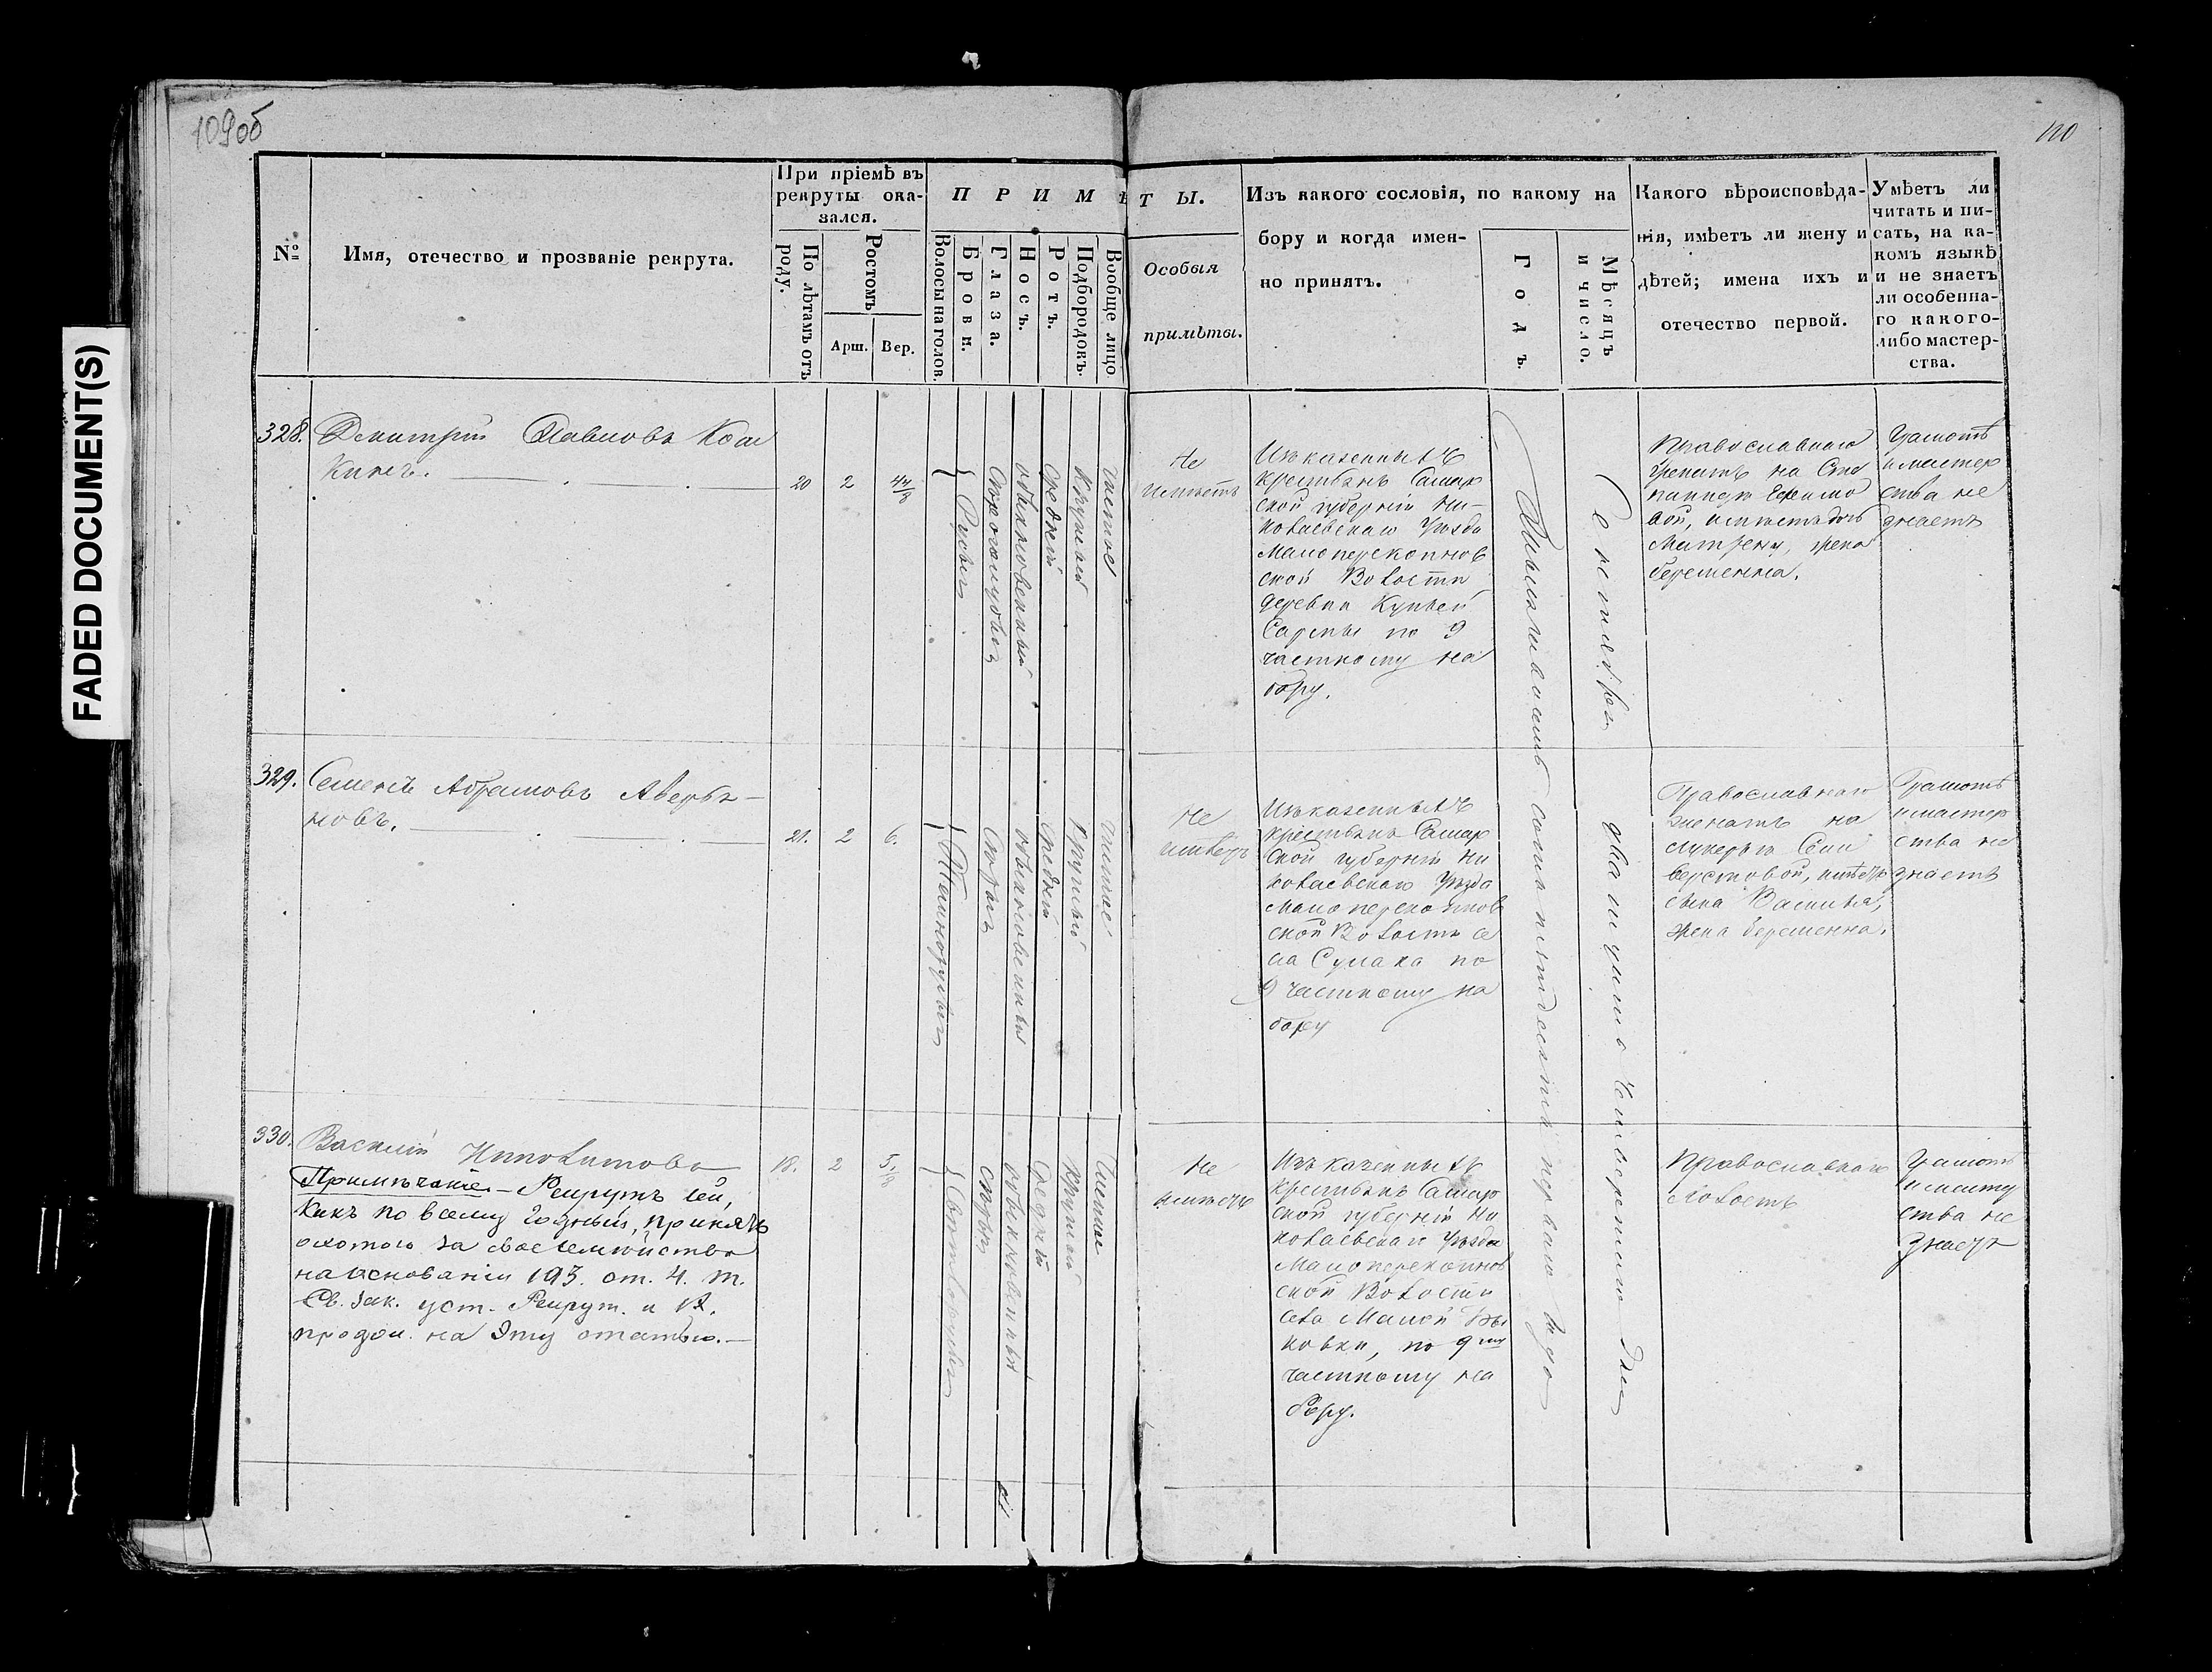 FADED DOCUMENT(S)
109об
110
№
Имя, отечество и прозваніе рекрута.
При пріемѣ въ
рекруты ока-
зался.
По лѣтамъ отъ
роду.
Ростомъ
Арш.
Вер.
ПРИМѢТЫ.
Волосы на голов.
Брови.
Глаза.
Носъ.
Ротъ.
Подбородокъ.
Вообще лицо
Особыя
примѣты.
Изъ какого сословія, по какому на
бору и когда имен-
но принятъ.
Годъ.
Мѣсяцъ
и число.
Какого вѣроисповѣда-
нія, имѣетъ ли жену и
дѣтей; имена ихъ и
отечество первой.
Умѣетъ ли
читать и пи-
сать, на ка-
комъ языкѣ
и не знаетъ
ли особенна-
го какого-
либо мастер-
ства.
328.
Дмитрій Павловъ
20
2
4 4/8
Русые
обыкновенный
средній
круглый
чистое
Не
имѣетъ
Изъ казенныхъ
крестьянъ Самар
ской губерніи Ни-
колаевскаго Уѣзда
Малоперекопнов
ской Волости
деревни Кучьей
по 9
частному на
бору.
Тысяча восемьсотъ пятьдесятъ перваго года
Сентября двадцать четвертаго дня
Православнаго
женатъ на Сте
панидѣ Ефимо
вой, имѣетъ дочь
Матрену, жена
беременна.
Грамотѣ
и мастер
ства не
знаетъ
329.
Семенъ Абрамовъ Аверья-
новъ.
21.
2
6.
Темнорусые
Сѣрые
обыкновенный
средній
круглый
чистое
Не
имѣетъ
Изъ казенныхъ
крестьянъ Самар
ской губерніи Ни
колаевскаго Уѣзда
Малоперекопнов
ской Волости се
ла Сулака по
9 частному на
бору
Православнаго
женатъ на
Лукерьѣ Сели
верстовой, имѣетъ
сына Василья,
жена беременна.
Грамотѣ
и мастер
ства не
знаетъ
330.
Василій Ипполитовъ
18.
2
5 1/8
Примѣчаніе. – Рекрутъ сей,
какъ по всему годный, принятъ
охотою за свое семейство
на основаніи 193. ст. 4. т.
Св. Зак. уст. Рекрут. и
продол. на эту статью. –
Свѣтлорусые
сѣрые
обыкновенный
средній
круглый
чистое
Не
имѣетъ
Изъ казенныхъ
крестьянъ Самар
ской губерніи Ни
колаевскаго Уѣзда
Малоперекопнов
ской Волости
села Малой Бы
ковки, по 9му
частному на
бору.
Православнаго
холостъ
Грамотѣ
и масте
ства не
знаетъ